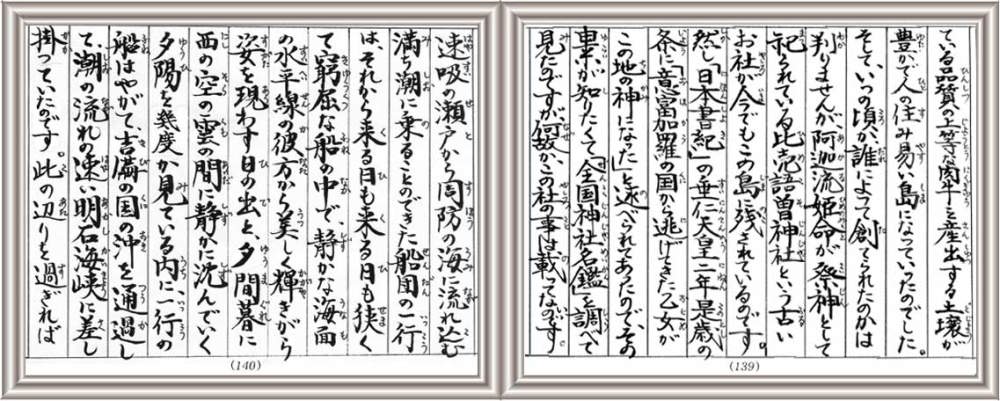 ている品質の上等な肉牛を産出する土壌が
豊かで人の住み易い島になっていたのでした。
そして、いつの頃か誰によって創てられたのかは
判りませんが、阿泇流姫命が祭神として
祀られている比売語曽神社という古い
お社が今でもこの島に残されているのです。
然し「日本書紀」の垂仁天皇二年是歳の
条に「意富加羅の国から逃げてきた乙女が
この地の神になった」と述べられてあったので、その
事が知りたくて「全国神社名鑑」を調べて
見たのですが、何故かこの社の事は載ってないのです。
(139)
速吸の瀬戸から周防の海に流れ込む
満ち潮に乗ることのできた船団の一行
は、それから来る日も来る日も狭く
て窮屈な船の中で、静かな海面
の水平線の彼方から美しく輝きながら
姿を現わす日の出と、夕間暮に
西の空の雲の間に静かに沈んでいく
夕陽を幾度か見ている内に一行の
船はやがて、吉備の国の沖を通過し
て、潮の流れの速い明石海峡に差し
掛っていたのです。此の辺りを過ぎれば
(140)